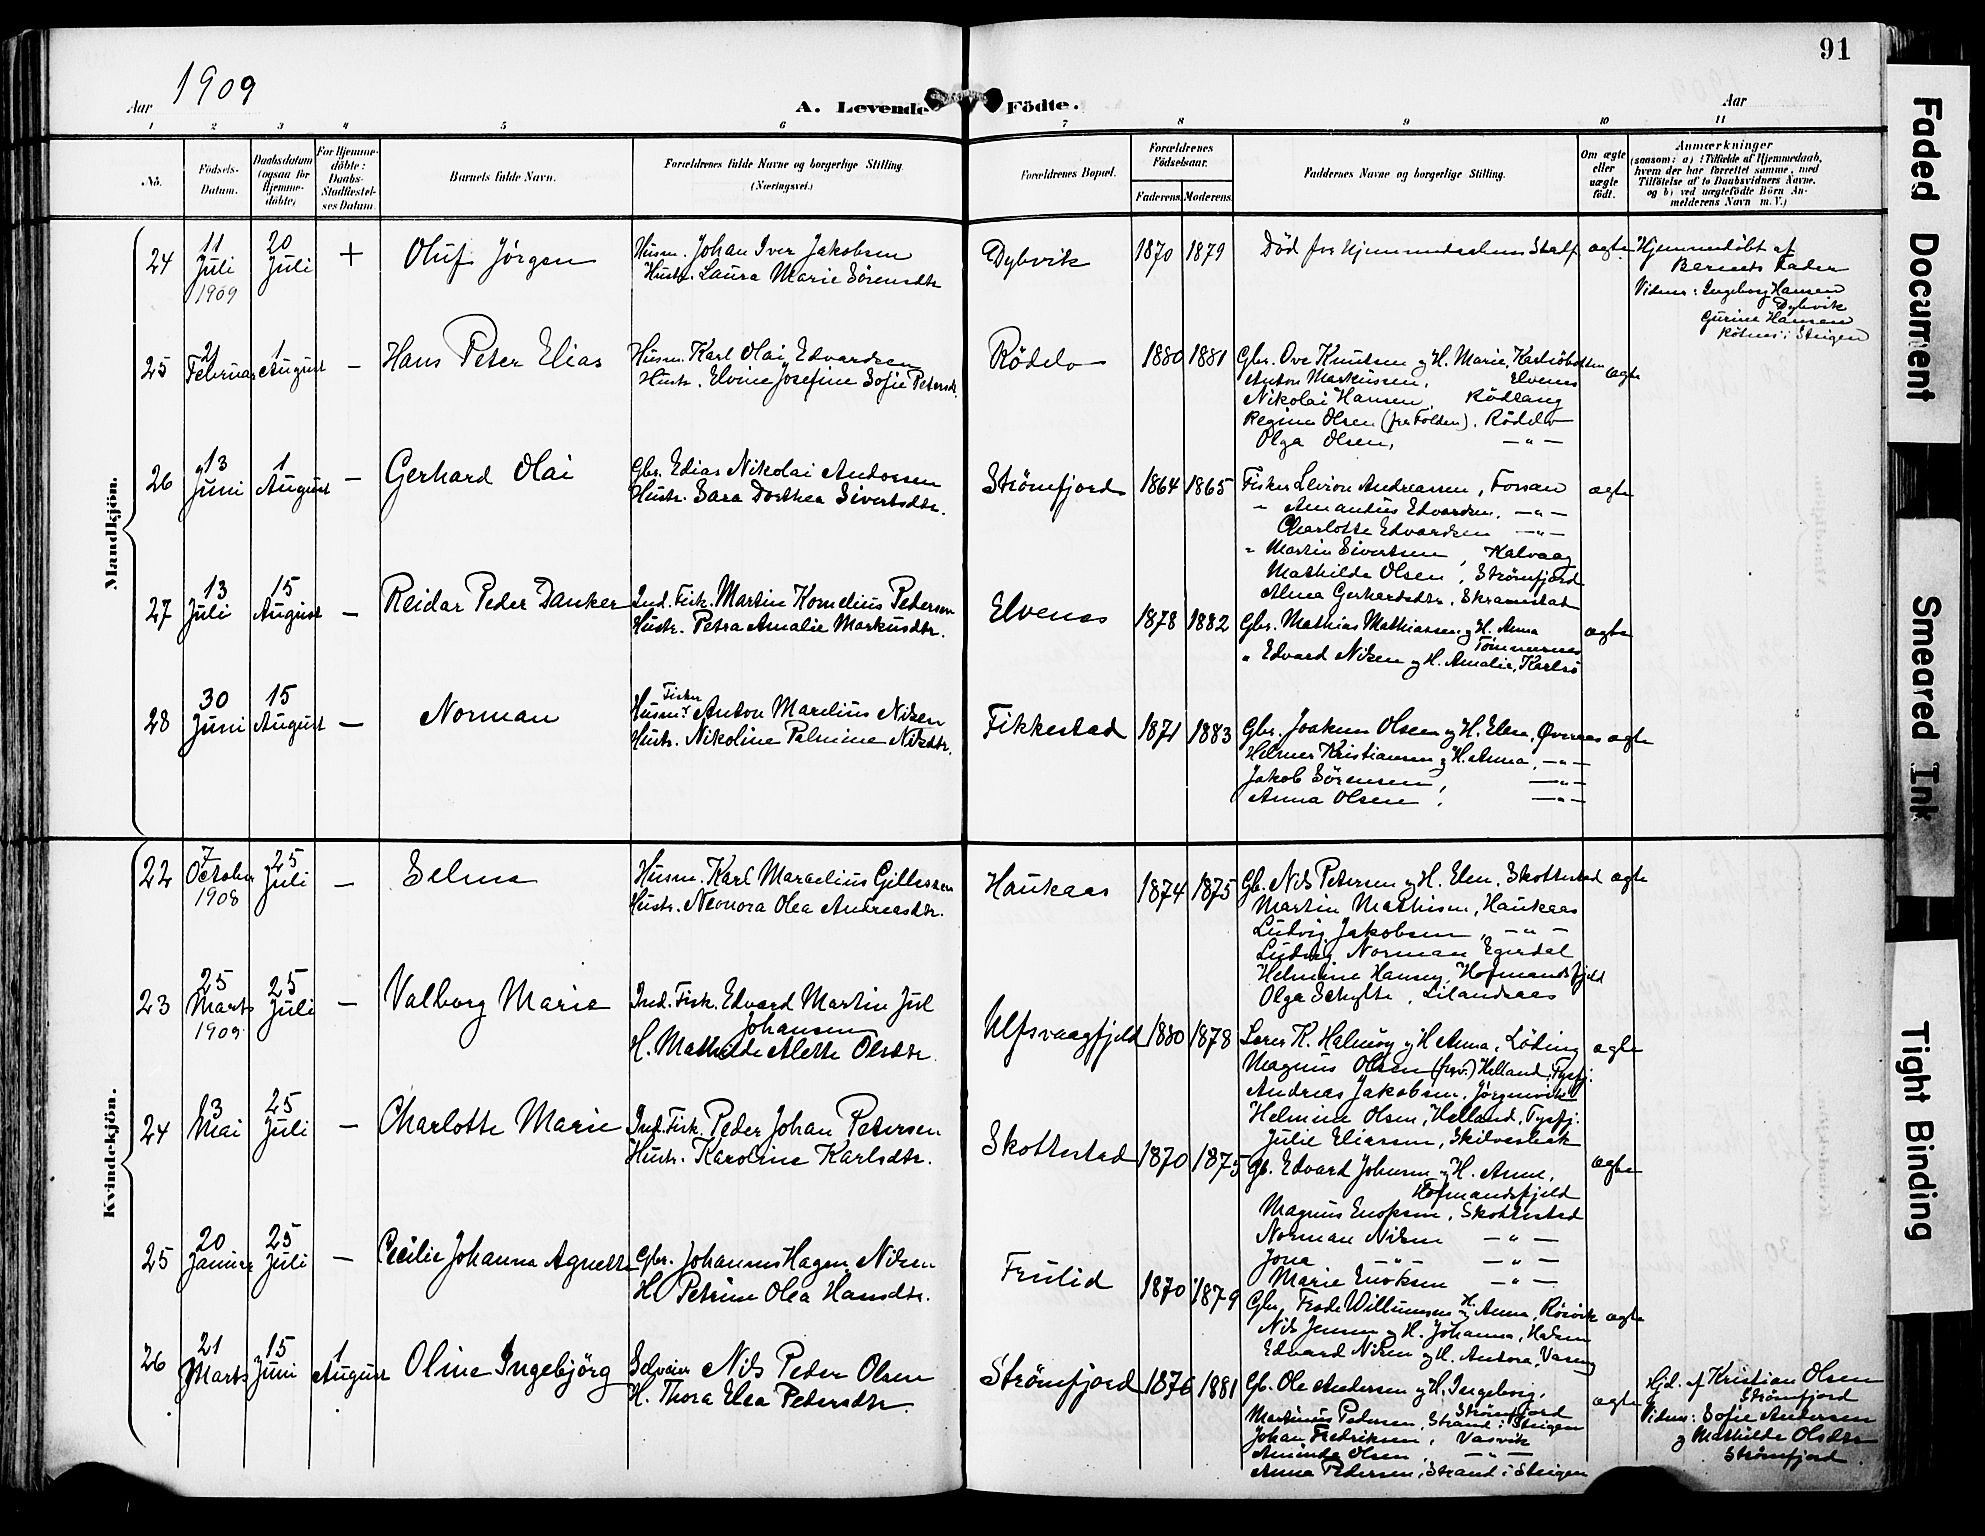 91
Aar 1909
A. Levende Födte.
Aar
1 2 3 4 5 6 7 8 9 10 11
No.
Födsels-Datum.
Daabsdatum (ogsaa for Hjemme-döbte)
For Hjemme-döbte: Daabs-Stadfæstel-ses Datum.
Barnets fulde Navn.
Forældrenes fulde Navne og borgerlige Stilling. (Næringsvei.)
Forældrenes Bopæl.
Forældrenes Födselsaar.
Faderens. Moderens.
Faddernes Navne og borgerlige Stilling.
Om ægte eller uægte født.
Anmærkninger
(saasom: a) i Tilfælde af Hjemmedaab,
hvem der har forrettet samme, med
Tilföielse af to Daabsvidners Navne,
og b) ved uægtefödte Börn An-
melderens Navn m. V.)
Mandkjön.
24 11 Juli 1909 20 Juli + Oluf Jørgen
Husm. Johan Iver Jakobsen
Hustr. Laura Marie Sörensdtr
Dybvik 1870 1879 Død før Hjemmedaabens Stadf ægte
Hjemmedøbt af
Barnets Fader
Vidner: Ingeborg Hansen
Dybvik
Gurine Hansen
Røtnes i Steigen
25 21 Februar 1 August — Hans Peter Elias
Husm. Karl Olai Edvardsen
Hustr. Elvine Josefine Sofie Petersdtr.
Rödelv 1880 1881 Gbr. Ove Knutsen og H. Marie, ægte
Anton Markussen, Elvenes
Nikolai Hansen, Rödtang
Regine Olsen (fra Folden). Rödelv
Olga Olsen, — „ —
26 13 Juni 1 August — Gerhard Olai
Gbr. Edias Nikolai Andorsen
Hustr. Sara Dorthea Sivertsdtr.
Strömfjord 1864 1865 Fisker Andreassen, Forsan ægte
„ Amandus Edvardsen, — „ —
Charlotte Edvardsen — „ —
„ Martin Sivertsen, Kalvaag
Mathilde Olsen, Strömfjord
Alma Gerhardsdtr, Skramstad
27 13 Juli 15 August — Reidar Peder Danker
Ind. Fisk. Martin Kornelius Pedersen
Hustr. Petra Amalie Markusdtr.
Elvenes 1878 1882 Gbr. Mathias Mathiassen og H. Anna ægte
Tømmernes
„ Edvard Nilsen og H. Amalie, Karlsö
28 30 Juni 15 August — Norman
Fisker
Husm. & Anton Marelius Nilsen
Hustr. Nikoline Palmine Nilsdtr.
Fikkestad 1871 1883 Gbr. Joakim Olsen og H. Elen, Øvernes ægte
Helmer Kristiansen og H. Anna, — „ —
Jakob Sörensen, — „ —
Anna Olsen, — „ —
Kvindekjön.
22 7 October 1908 25 Juli — Selma
Husm. Karl Marcelius Gillessen
Hustr. Neonora Olea Andreasdtr.
Haukaas 1874 1875 Gb. Nils Petersen og H. Elen. Skottestad ægte
Martin Mathisen, Haukaas
Ludvig Jakobsen, — „ —
Ludvig Norman Egerdal
Helmine Hansen, Hofmandsfjeld
Olga Schytte, Lilandsaas
23 25 Marts 1909 25 Juli — Valborg Marie
Ind. Fisk. Edvard Martin Jul
Johansen
H. Mathilde Alette Olsdtr.
Ulfsvaagfjeld 1880 1878 K. Halnesø og H Anna, Løding ægte
Magnus Olsen Helland, Tysfj.
Andreas Jakobsen, Jörgenvik
Helmine Olsen, Helland, Tysfj.
Julie Eliassen,
24 13 Mai 25 Juli — Charlotte Marie
Ind. Fisk. Peder Johan Petersen
Hustr. Karoline Karlsdtr.
Skottestad 1870 1875 Gb. Edvard Johnsen og H. Anne, ægte
Hofmandsfjeld
Magnus Enoksen, Skottestad
Norman Nilsen — „ —
Jona — „ — — „ —
Marie Enoksen — „ —
25 20 Januar 25 Juli — Cecilie Johanna Agnethe
Gbr. Johannes Hagen Nilsen
H. Petrine Olea Hansdtr.
Frulid 1870 1879 Gbr. Frode Willumsen og H. Anna, Rösvik ægte
Nils Jensen og H. Johanna, Halsen
Edvard Nilsen og H. Antora,
26 21 Marts 15 Juni 1 August Oline Ingebjörg
Selveier Nils Peder Olsen
H. Thora Elea Pedersdtr.
Strömfjord 1876 1881 Gb. Ole Andersen og H. Ingeborg, ægte
Strömfjord
Martinus Pedersen, Strand i Steigen
Johan Fredriksen, Vasvik
Aminda Olsen, — „ —
Anna Pedersen, Strand i Steigen
Hjd. af Kristian Olsen
Strömfjord
Vidner: Sofie Andersen
og Mathilde Olsdtr
Strömfjord.
Faded Document
Smeared Ink
Tight Binding